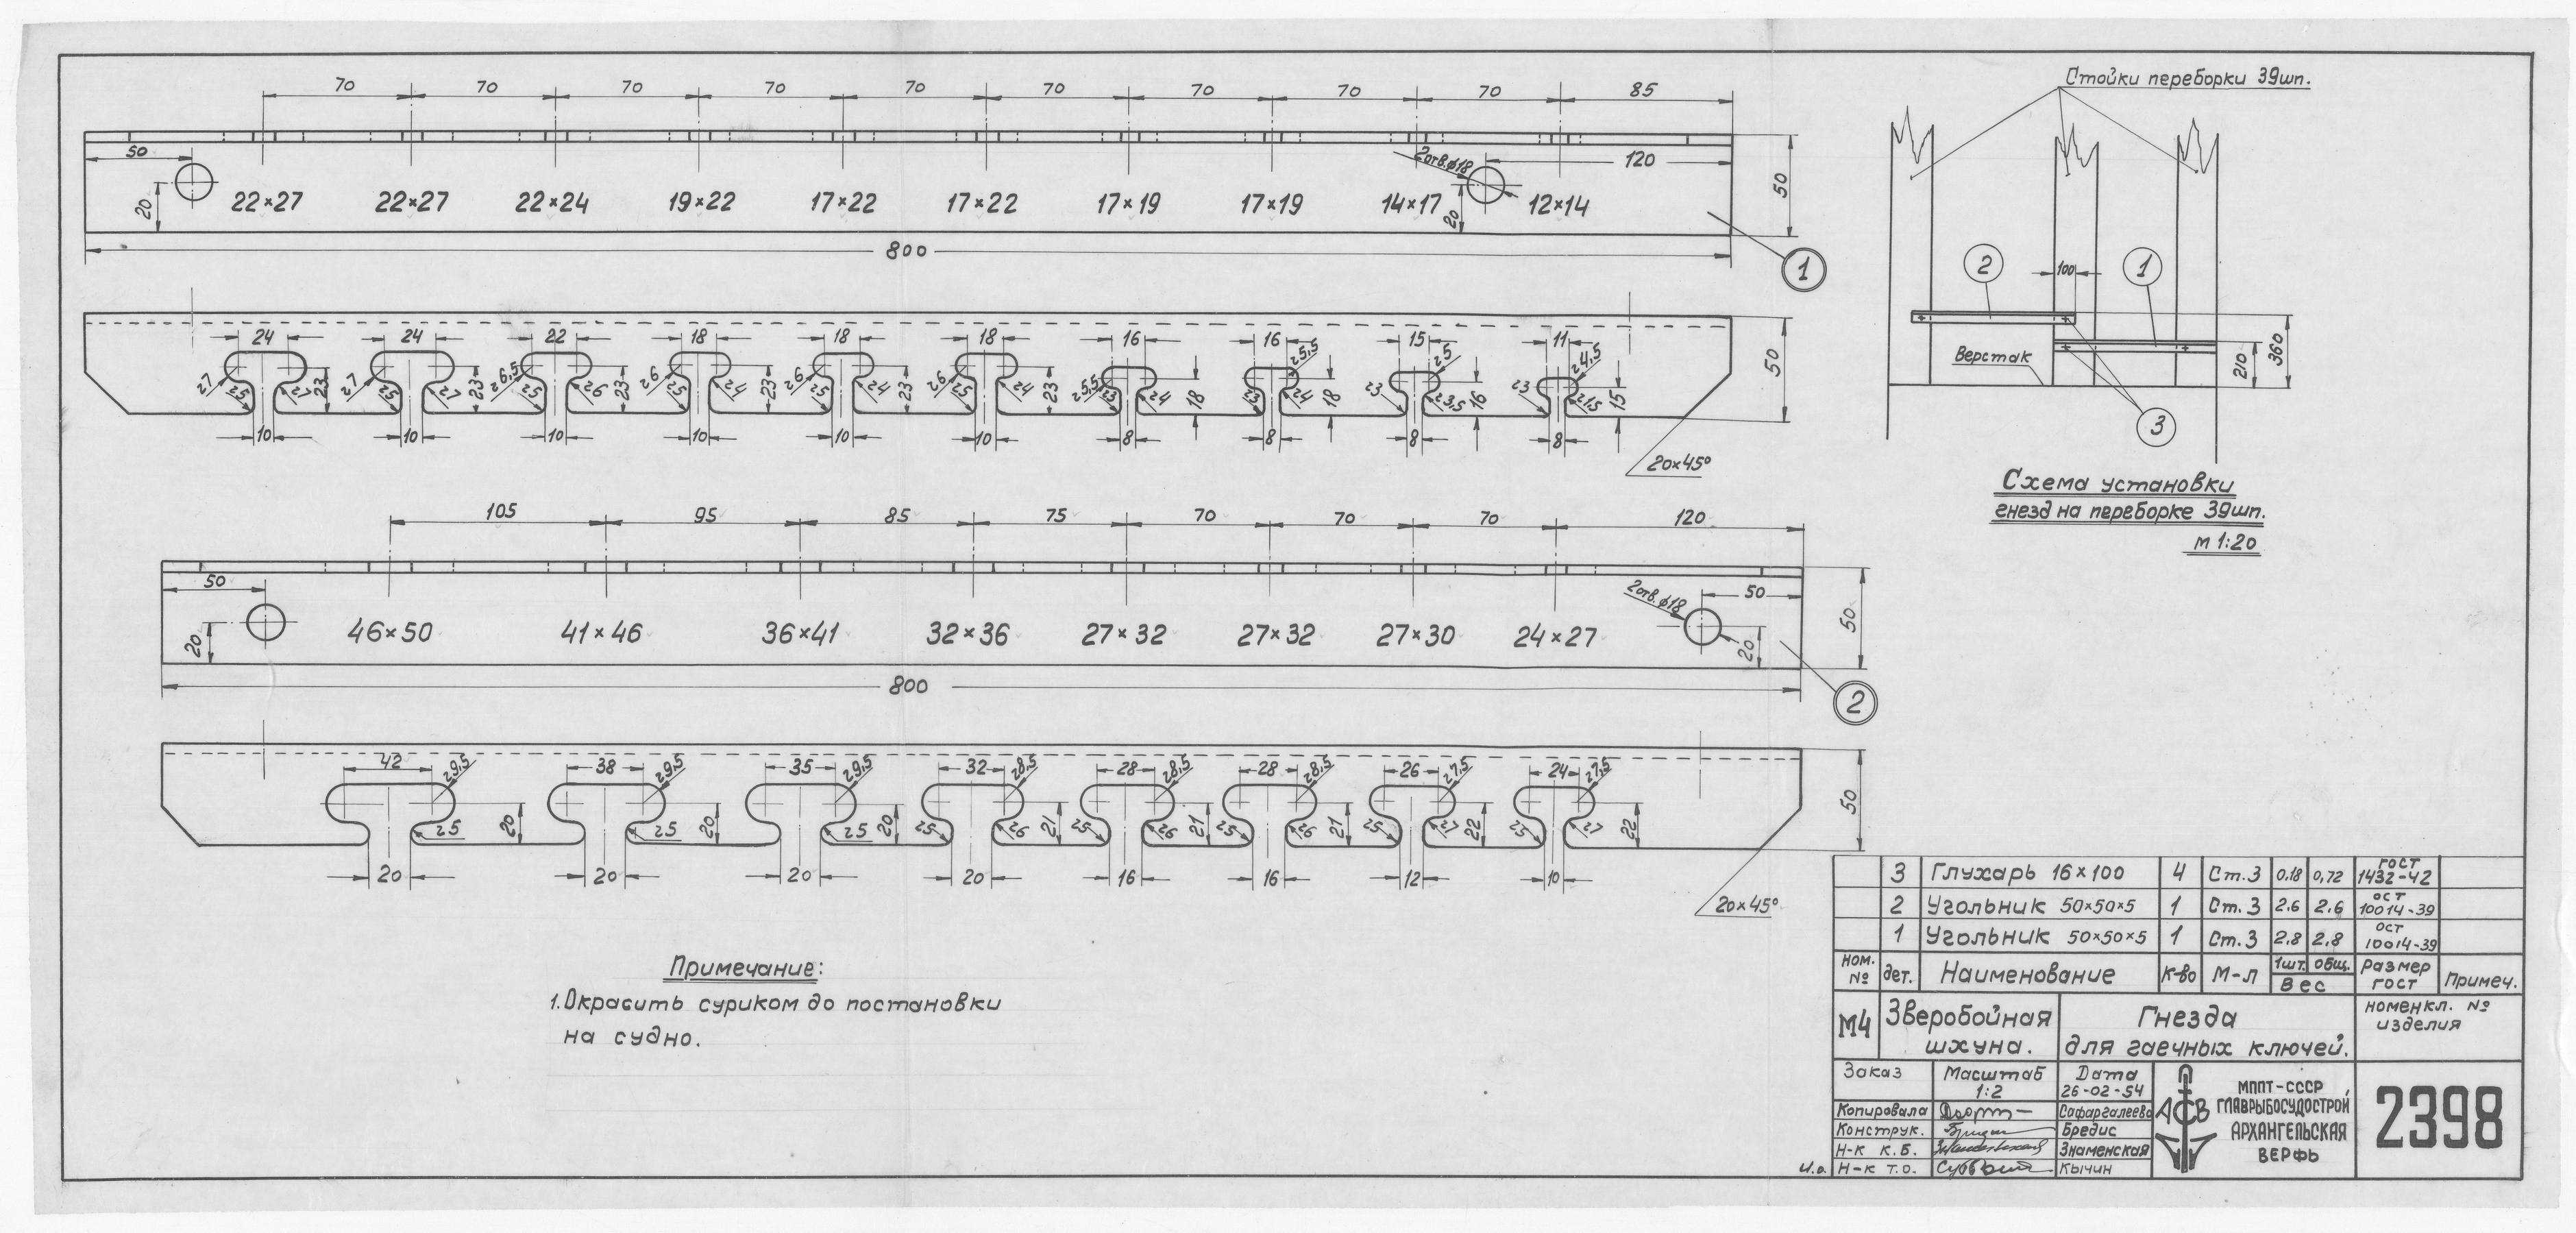 70 70 70 70 70 70 70 70 70 85
50 2отв.ф18 120
20 22×27 22×27 22×24 19×22 17×22 17×22 17×19 17×19 14×17 20 12×14 50
800
1
24 24 22 18 18 18 16 16 15 11
г7 г5 г7 23 г7 г5 г7 23 г6,5 г5 г6 23 г6 г5 г4 23 г6 г5 г4 23 г6 г5 г4 23 г5,5 г3 г4 18 г5,5 г3 г4 18 г5 г3 г3,5 16 г4,5 г3 г1,5 15 50
10 10 10 10 10 10 8 8 8 8
20×45°
105 95 85 75 70 70 70 120
50 2отв.ф18 50
20 46×50 41×46 36×41 32×36 27×32 27×32 27×30 24×27 20 50
800
2
42 г9,5 38 г9,5 35 г9,5 32 г8,5 28 г8,5 28 г8,5 26 г7,5 24 г7,5
г5 20 г5 20 г5 20 г5 г6 21 г5 г6 21 г5 г6 21 г5 г7 22 г5 г7 22 50
20 20 20 20 16 16 12 10
20×45°
Примечание:
1.Окрасить суриком до постановки
на судно.
Стойки переборки 39шп.
2 100 1
Верстак 210 360
3
Схема установки
гнезд на переборке 39шп.
м 1:20
3 Глухарь 16×100 4 Ст.3 0,18 0,72 ГОСТ 1432-42
2 Угольник 50×50×5 1 Ст.3 2,6 2,6 ОСТ 10014-39
1 Угольник 50×50×5 1 Ст.3 2,8 2,8 ОСТ 10014-39
ном. № дет. Наименование К-во М-л 1шт. общ. Вес Размер гост Примеч.
М4 Зверобойная шхуна. Гнезда для гаечных ключей. номенкл. № изделия
Заказ Масштаб 1:2 Дата 26-02-54
Копировала Сафаргалеева
Конструк. Бредис
Н-к К.Б. Знаменская
И.о. Н-к т.о. Кычин
АСВ
МППТ-СССР
ГЛАВРЫБОСУДОСТРОЙ
АРХАНГЕЛЬСКАЯ
ВЕРФЬ
2398